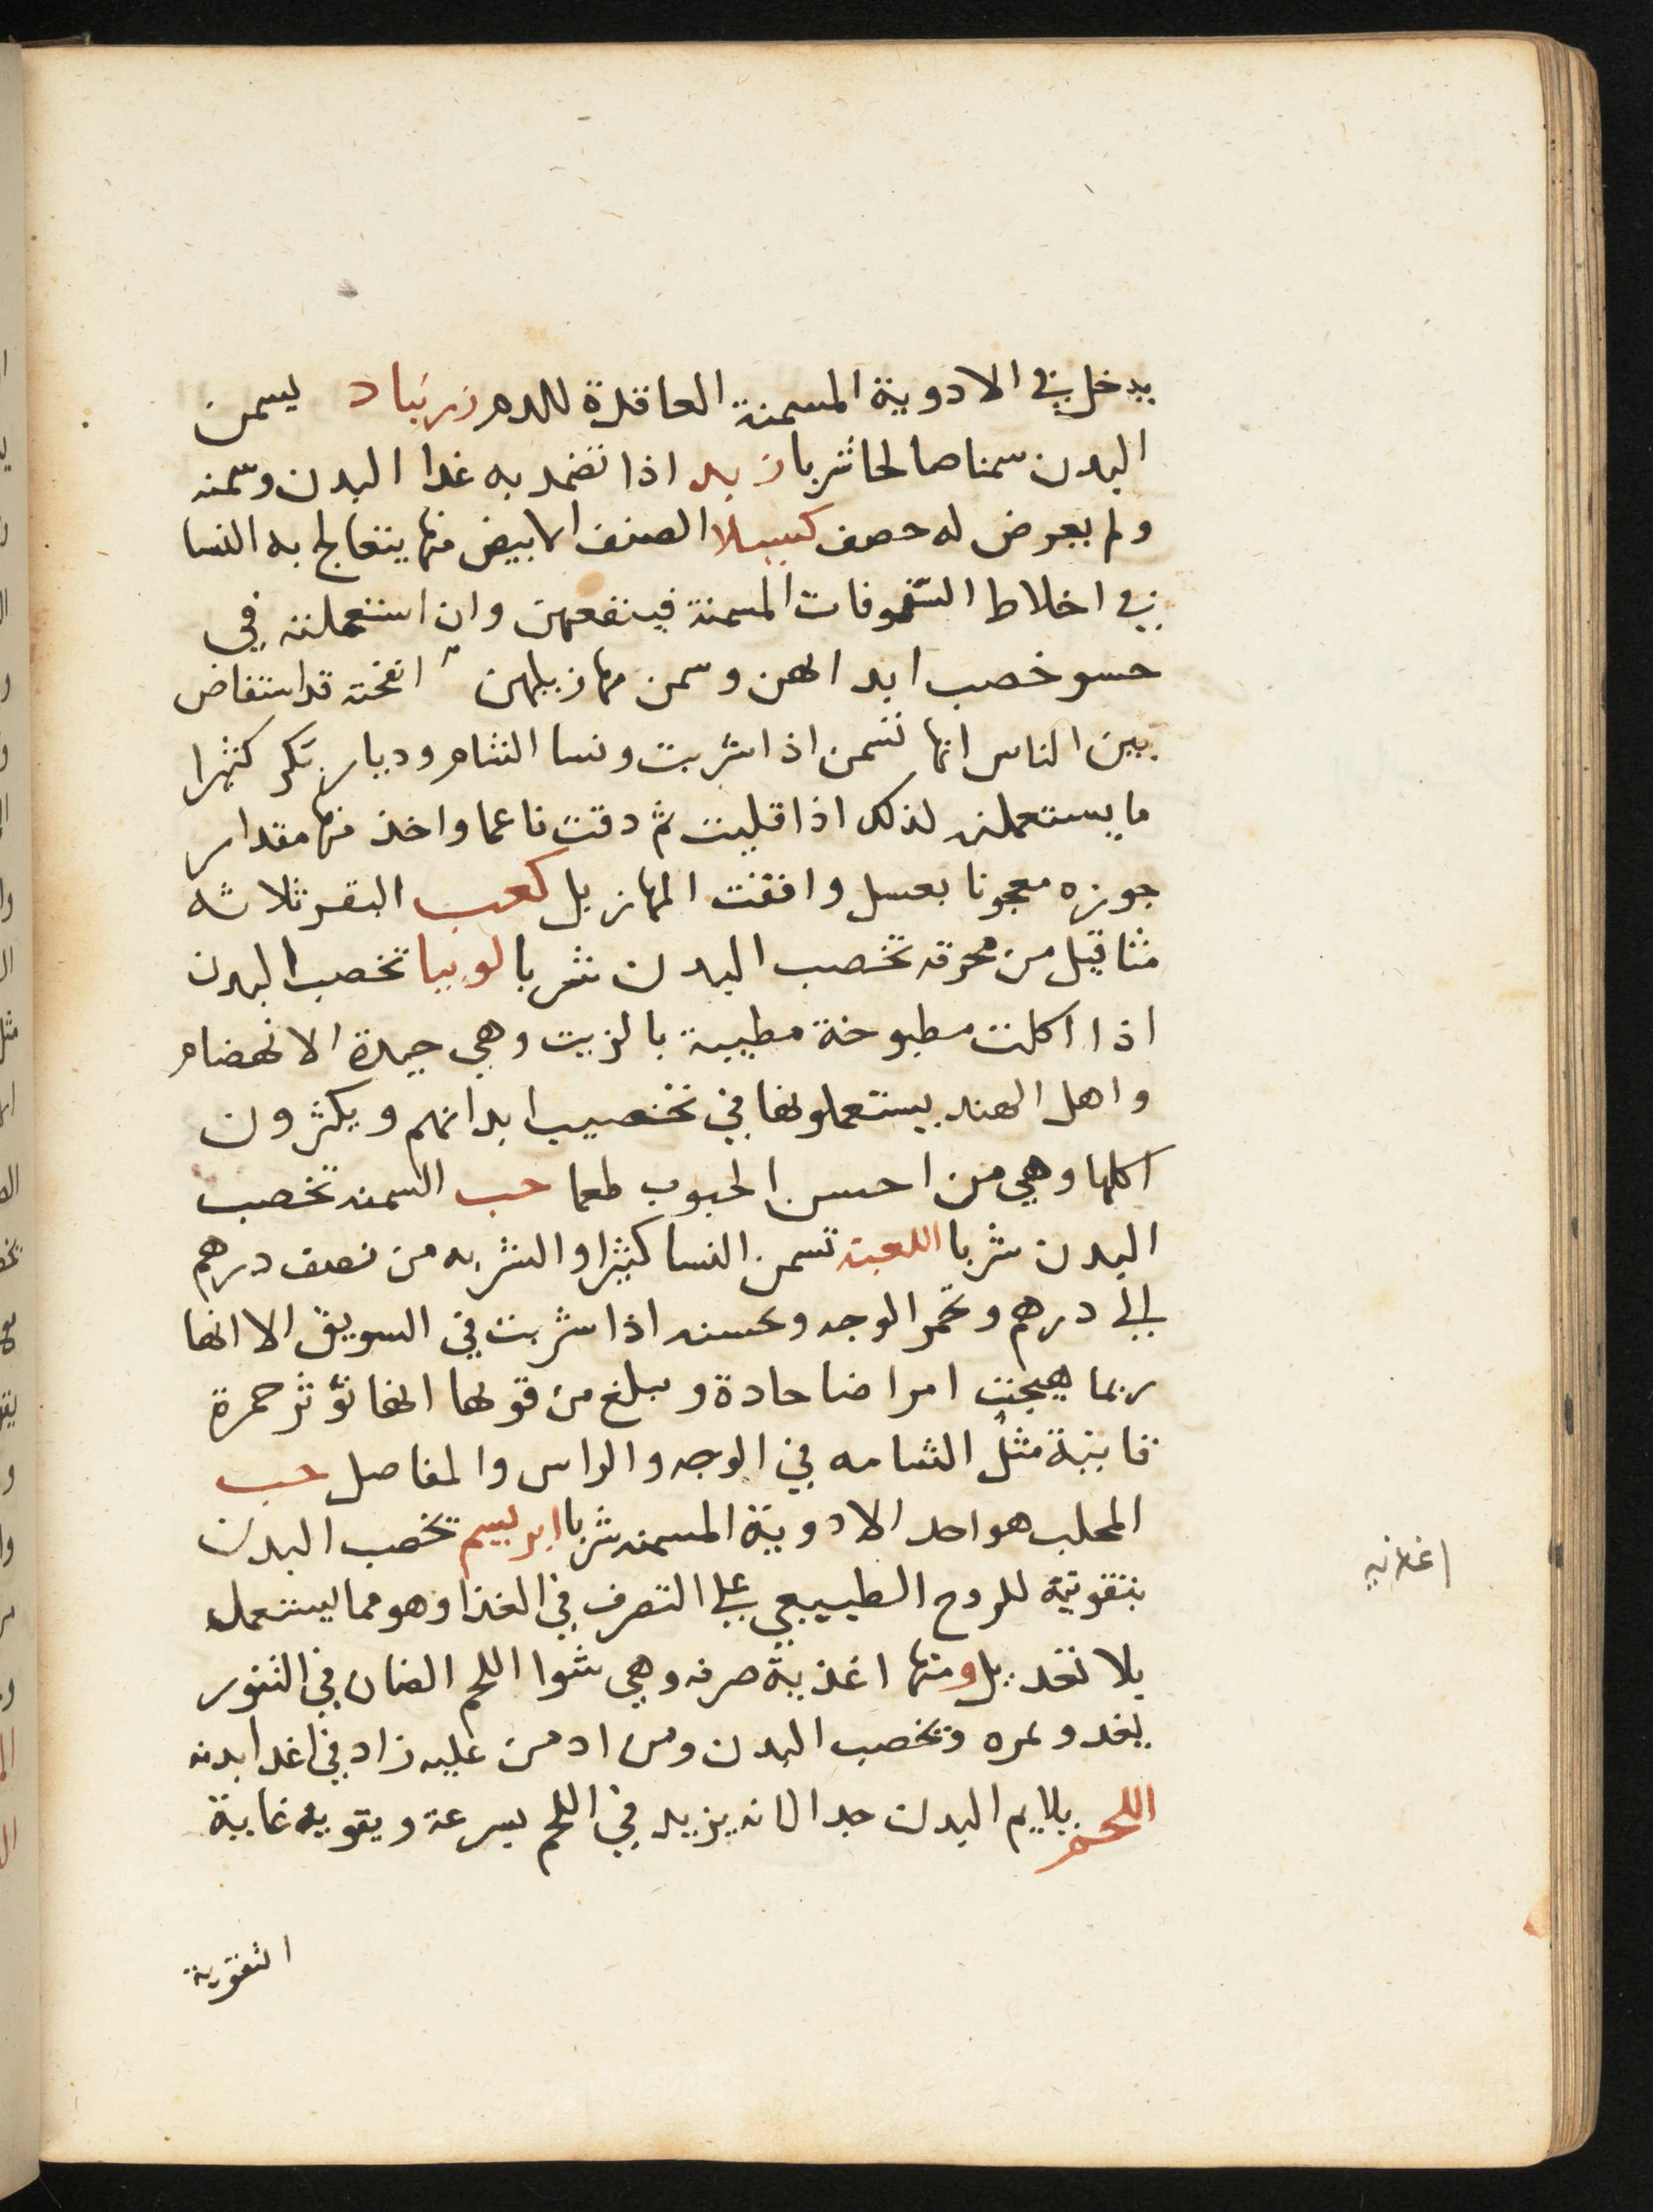 يدخل في الادوية المسمنة العاقدة للدم زرنباد يسمن
البدن سمنا صالحا شربا زبد اذا تضمد به غدا البدن وسمنه
ولم يعرض له حصف كسيلا الصنف الابيض منها يتعالج به النسا
في اخلاط السفوفات المسمنة فينفعهن وان استعملنه في
حسو خصب ابدانهن وسمن مهازيلهن انفخته قد استفاض
بين الناس انها تسمن اذا شربت ونسا الشام وديار بكر كثيرا
ما يستعملنه لذلك اذا قليت ثم دقت ناعما واخذ منها مقدار
جوزه معجونا بعسل وافقت المهازيل كعب البقر ثلاثه
مثاقيل من محرقه تخصب البدن شربا لوبيا تخصب البدن
اذا اكلت مطبوخة مطيبة بالزيت وهي جيدة الانهضام
واهل الهند يستعملونها في تخصيب ابدانهم ويكثرون
اكلها وهي من احسن الحبوب طعما حب السمنه تخصب
البدن شربا اللعبه تسمن النسا كثيرا والشربه من نصف درهم
الى درهم وتحمر الوجه وتحسنه اذا شربت في السويق الا انها
ربما هيجت امراضا حادة ويبلغ من قوتها انها تؤثر حمرة
ثابتة مثل الشامه في الوجه والراس والمفاصل حب
المحلب هو احد الادوية المسمنه شربا ابريسم تخصب البدن
بتقوية للروح الطبيعي على التصرف في الغذا وهو مما يستعمل
بلا تعديل ومنها اغذية صرفه وهي شوا اللحم الضان في التنور
يغدو يمره وتخصب البدن ومن ادمن عليه زاد في اغدا بدنه
اللحم يلايم البدن جدا لانه يزيد في اللحم بسرعة ويقويه غاية
التقوية
اغذيه